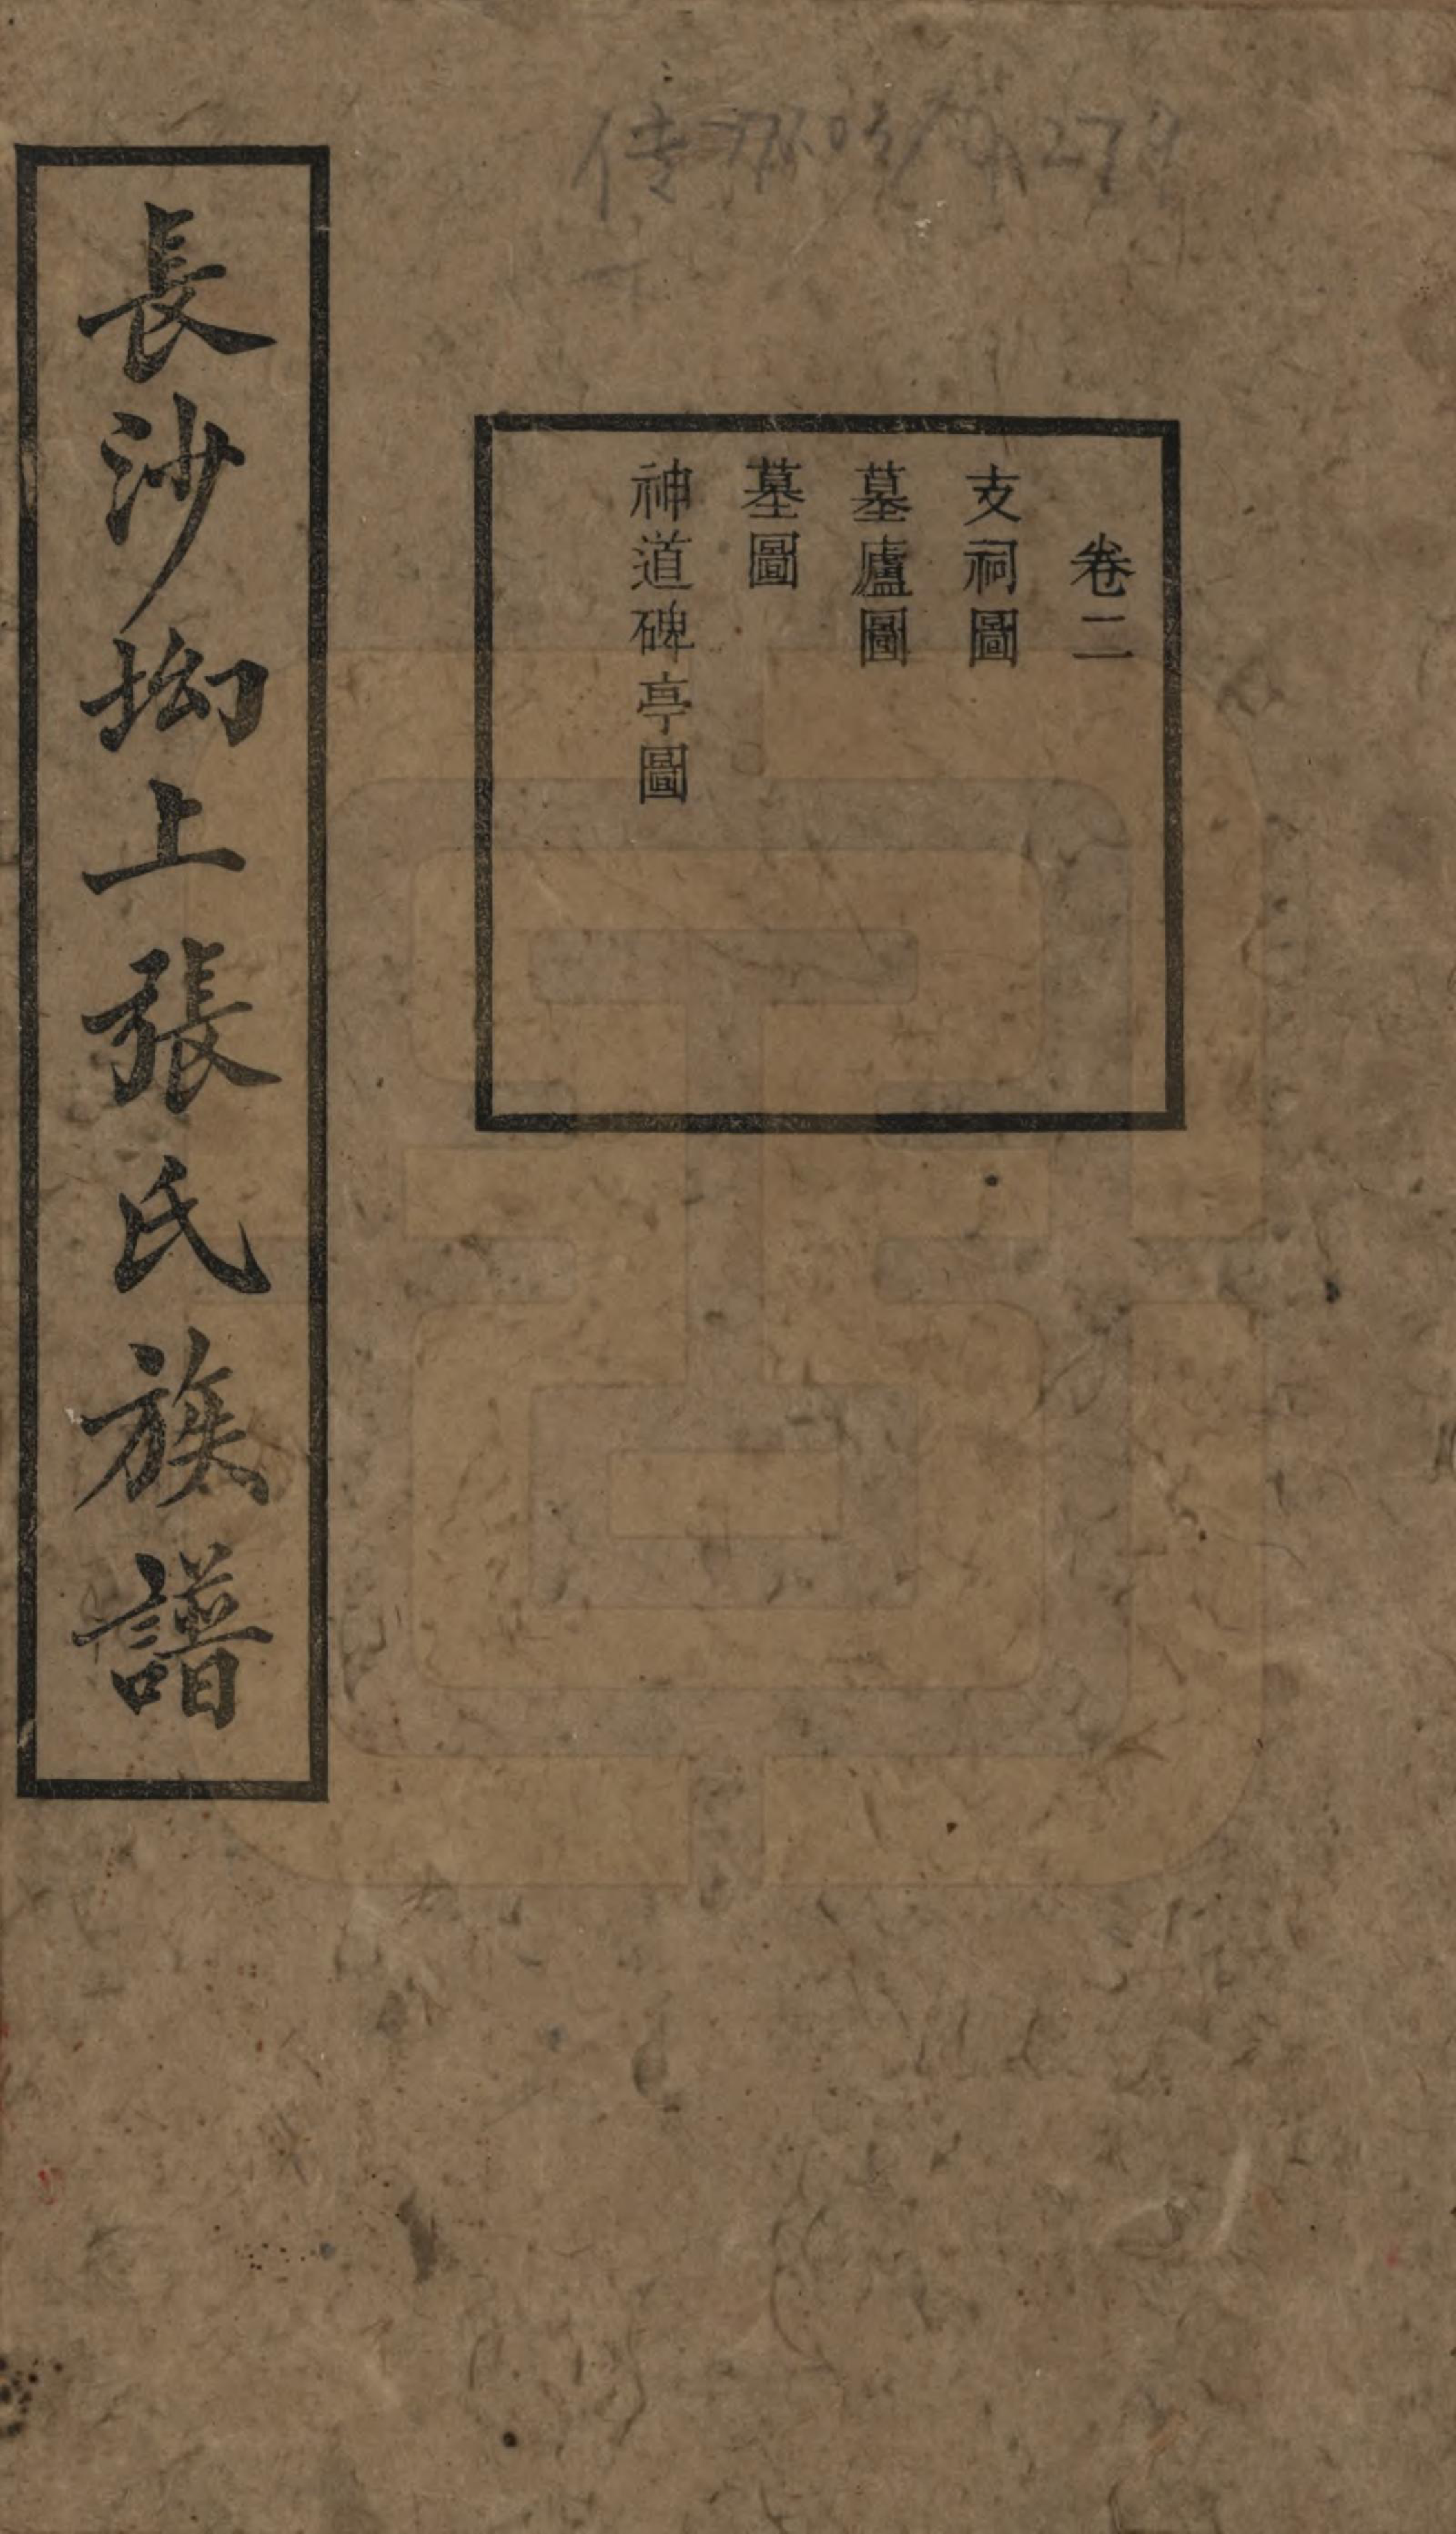 卷二
支祠圖
墓廬圖
墓圖
神道碑亭圖
長沙拗上張氏族譜